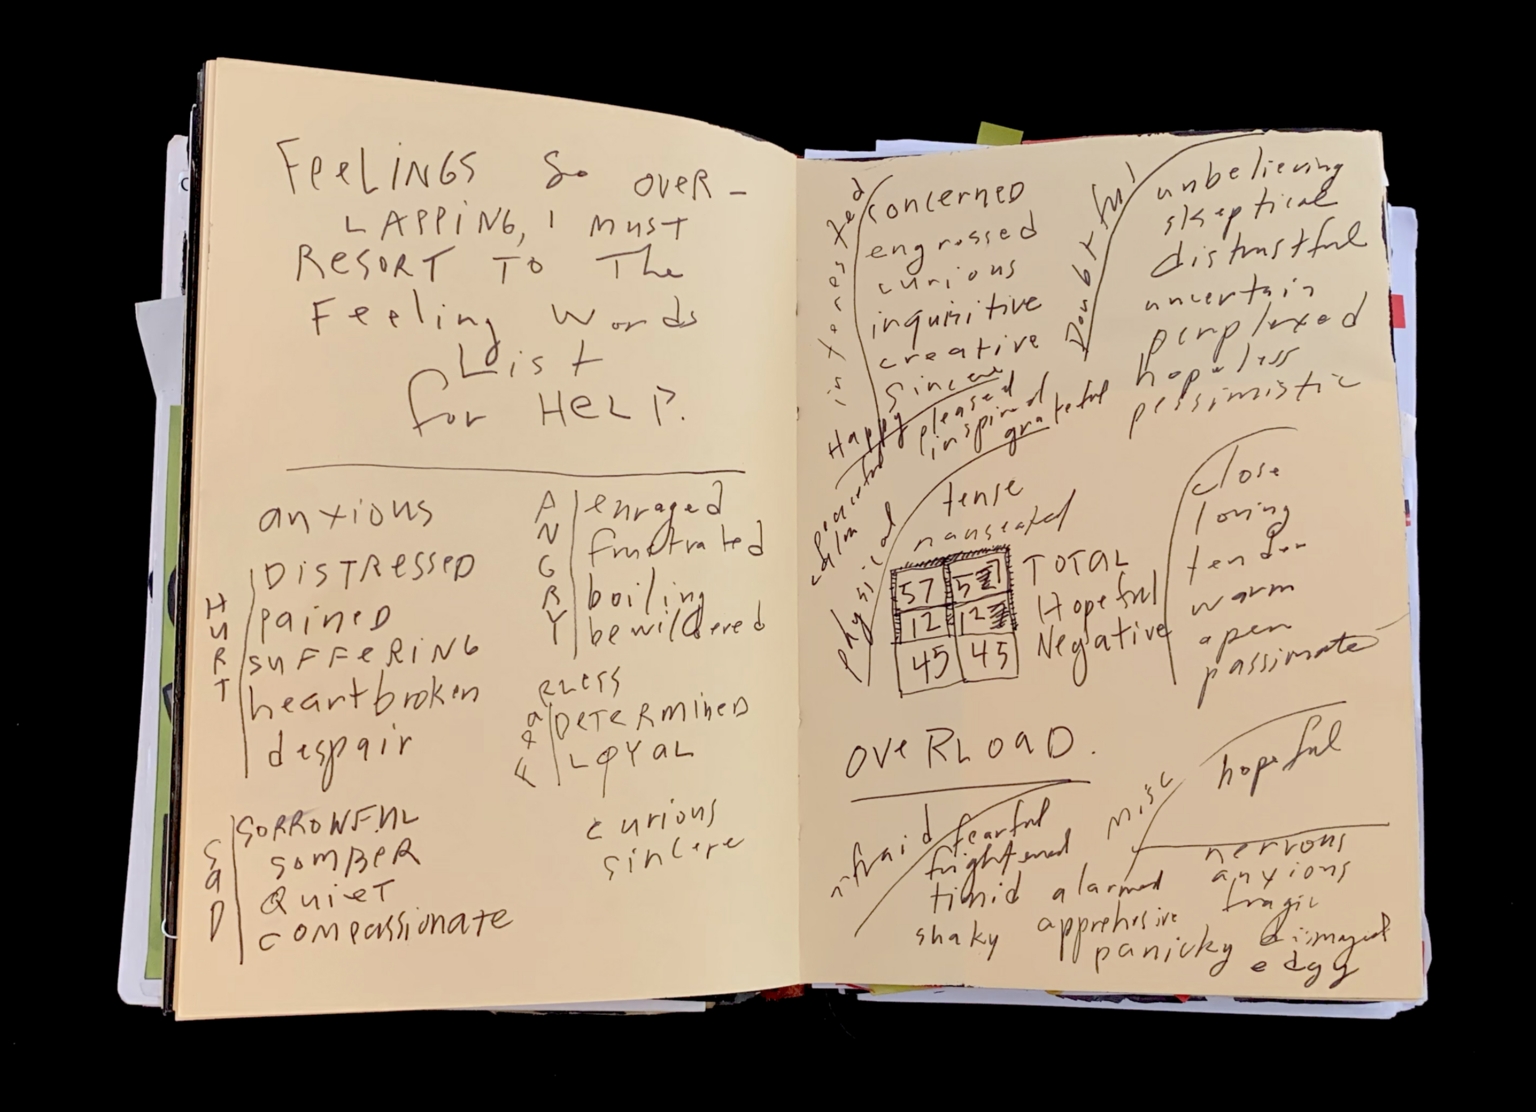 FeeLINGS So oveR-
LAPPING, I MUST
ResoRT To The
Feeling Words
List
for HeLP.
anxious
HURT
DISTRessed
PaineD
suFFeRiNG
heartbroken
despair
SaD
SoRROWFuL
SomBeR
QuieT
compassionate
ANGRY
enraged
frustrated
boiling
bewildered
DeTeRmineD
LoYaL
curious
sincere
interested
concerned
engrossed
curious
inquisitive
creative
Sincere
Doubtful
unbelieving
skeptical
distrustful
uncertain
perplexed
hopeless
pessimistic
Happy
pleased
inspired
grateful
peaceful
calm
physical
tense
nauseated
57 57 TOTAL
12 12 Hopeful
45 45 Negative
close
loving
tender
warm
open
passimate
oveRLoaD.
misc
hopeful
afraid
fearful
frightened
timid
shaky
alarmed
apprehesive
panicky
nervous
anxious
tragic
dismayed
edgy